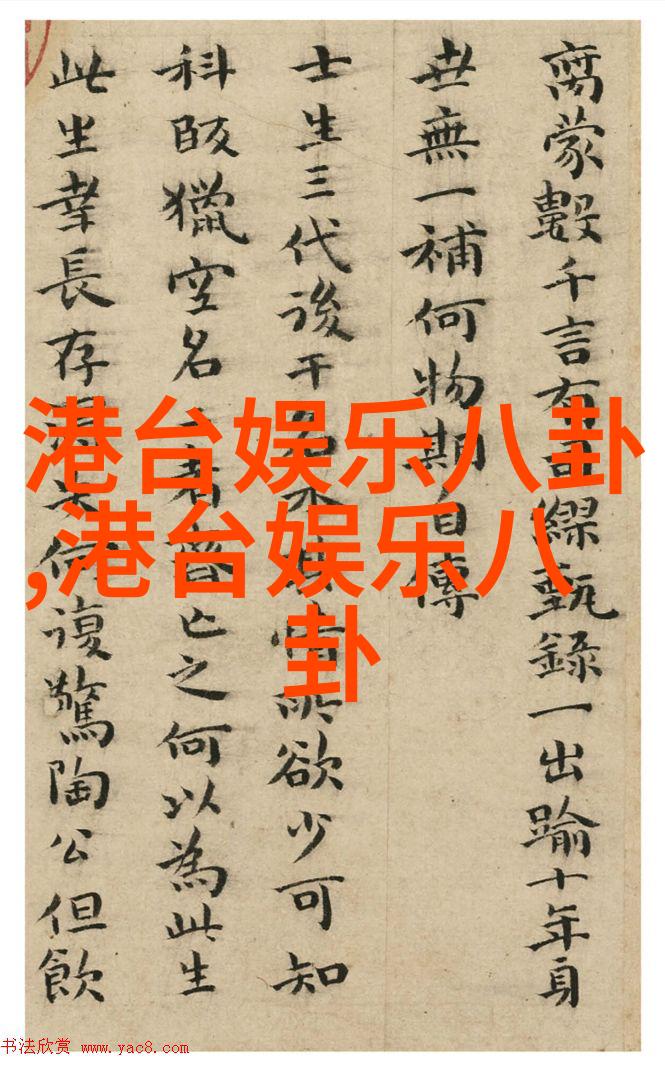 离蒙數千言有司繆甄錄一出踰十年身
世無一補何物期自傳
士生三代後干名不
情所欲少可知
科取獵空名
者皆亡之何以為此生
此生幸長存
何復驚陶公但飲
港台娱乐八卦
,港台娱乐八
卦
书法欣赏 www.yac8.com